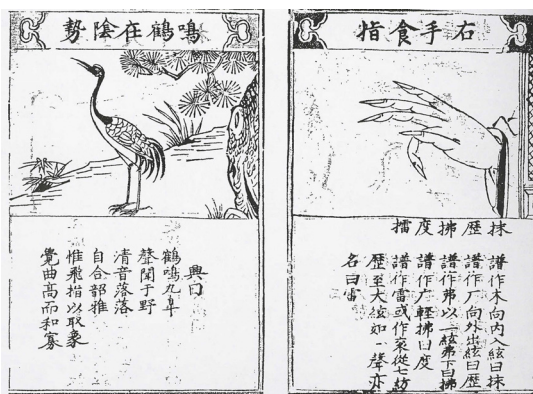 右手食指
抹歷拂度擂
譜作木向內入絃曰抹
譜作厂向外出絃曰歷
譜作弗以一絃弗下曰拂
譜作輕拂曰度
譜作雷或作從七紡
歷至大絃如一聲亦
名曰雷
鳴鶴在陰勢
興曰
鶴鳴九皋
聲聞于野
清音落落
自合韶雅
惟飛指以取象
覺曲高而和寡